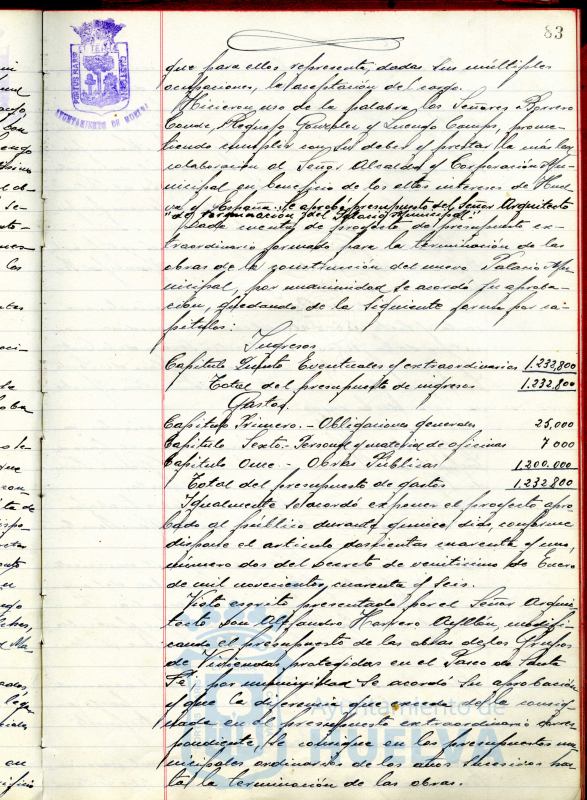 83
que para ellos representa, dadas sus múltiples
ocupaciones, la aceptación del cargo.
Hicieron uso de la palabra los Señores Borrero
Conde, Requejo González y Luengo Camps, prome-
tiendo cumplir con su deber y prestar la más leal
colaboración al Señor Alcalde y Corporación Mu-
nicipal en beneficio de los altos intereses de Huel-
va y España. Se aprobó presupuesto del Señor Arquitecto
"de terminación del Palacio Municipal"
Dada cuenta de proyecto de presupuesto ex-
traordinario formado para la terminación de las
obras de la construcción del nuevo Palacio Mu-
nicipal, por unanimidad se acordó su aproba-
ción, quedando de la siguiente forma por ca-
pítulos:
Ingresos
Capítulo Quinto Eventuales y extraordinarios 1.232,800
Total del presupuesto de ingresos 1.232,800
Gastos.
Capítulo Primero.- Obligaciones generales 25,000
Capítulo Sexto.- Personal y material de oficinas 7 000
Capítulo Once.- Obras Públicas 1.200.000
Total del presupuesto de gastos 1.232800
Igualmente se acordó exponer el proyecto apro-
bado al público durante quince días, conforme
dispone el artículo doscientos cuarenta y uno,
número dos del Decreto de veinticinco de Enero
de mil novecientos cuarenta y seis.
Visto escrito presentado por el Señor Arqui-
tecto don Alejandro Herrero Ayllón, modifi-
cando el presupuesto de las obras de los Grupos
de Viviendas protegidas en el Paseo de Santa
Fé, por unanimidad se acordó su aprobación
y que la diferencia que excede de la consig-
nada en el presupuesto extraordinario corres-
pondiente, se consigne en los presupuestos mu-
nicipales ordinarios de los años sucesivos has-
ta la terminación de las obras.
AYUNTAMIENTO DE HUELVA
Ayuntamiento de
HUELVA